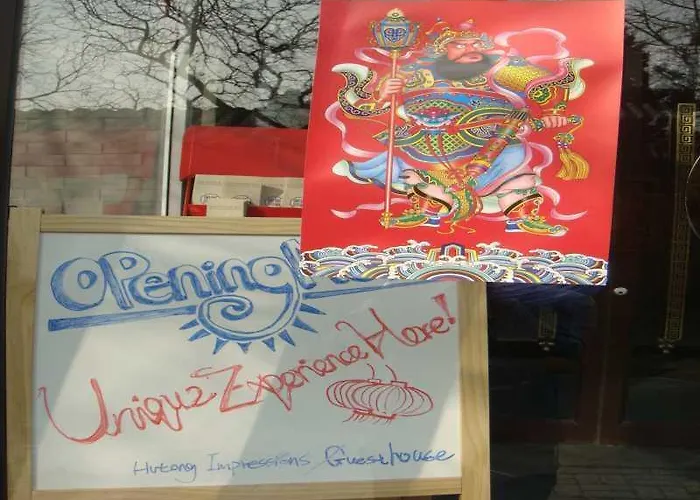 Opening
Unique Experience Here!
Hutong Impressions Guesthouse